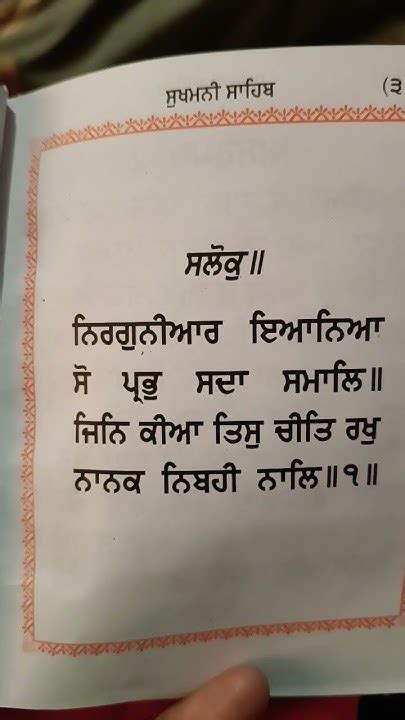 ਸੁਖਮਨੀ ਸਾਹਿਬ (੩
ਸਲੋਕੁ॥
ਨਿਰਗੁਨੀਆਰ ਇਆਨਿਆ
ਸੋ ਪ੍ਰਭੁ ਸਦਾ ਸਮਾਲਿ॥
ਜਿਨਿ ਕੀਆ ਤਿਸੁ ਚੀਤਿ ਰਖੁ
ਨਾਨਕ ਨਿਬਹੀ ਨਾਲਿ॥੧॥